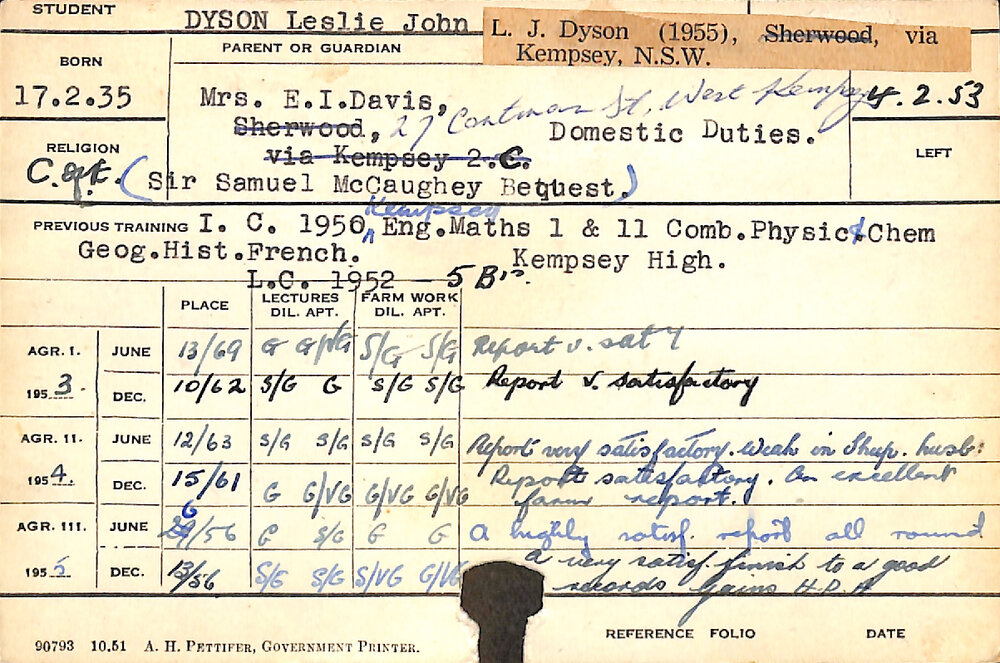 STUDENT DYSON Leslie John
L. J. Dyson (1955), Sherwood, via
Kempsey, N.S.W.
BORN PARENT OR GUARDIAN
17.2.35 Mrs. E.I.Davis, St, West Kempsey 4.2.53
Sherwood, 27 Domestic Duties.
via Kempsey 2.C.
RELIGION LEFT
C. of E. (Sir Samuel McCaughey Bequest.)
Kempsey
PREVIOUS TRAINING I. C. 1950, Eng.Maths 1 & 11 Comb.Physic & Chem
Geog.Hist.French. Kempsey High.
L.C. 1952 - 5 B's.
PLACE LECTURES FARM WORK
DIL. APT. DIL. APT.
AGR. I. JUNE 13/69 G G/VG S/G S/G Report v. sat y
1953. DEC. 10/62 S/G G S/G S/G Report v. satisfactory
AGR. II. JUNE 12/63 S/G S/G S/G S/G Report very satisfactory. Weak in Sheep. husb:
1954. DEC. 15/61 G G/VG G/VG G/VG Report satisfactory. An excellent
farm report.
AGR. III. JUNE /56 G S/G G G A highly satisf. report all round
1955 DEC. 13/56 S/G S/G S/VG G/VG A very satisf. finish to a good
records Gains H.D.A
90793 10.51 A. H. PETTIFER, GOVERNMENT PRINTER.
REFERENCE FOLIO DATE